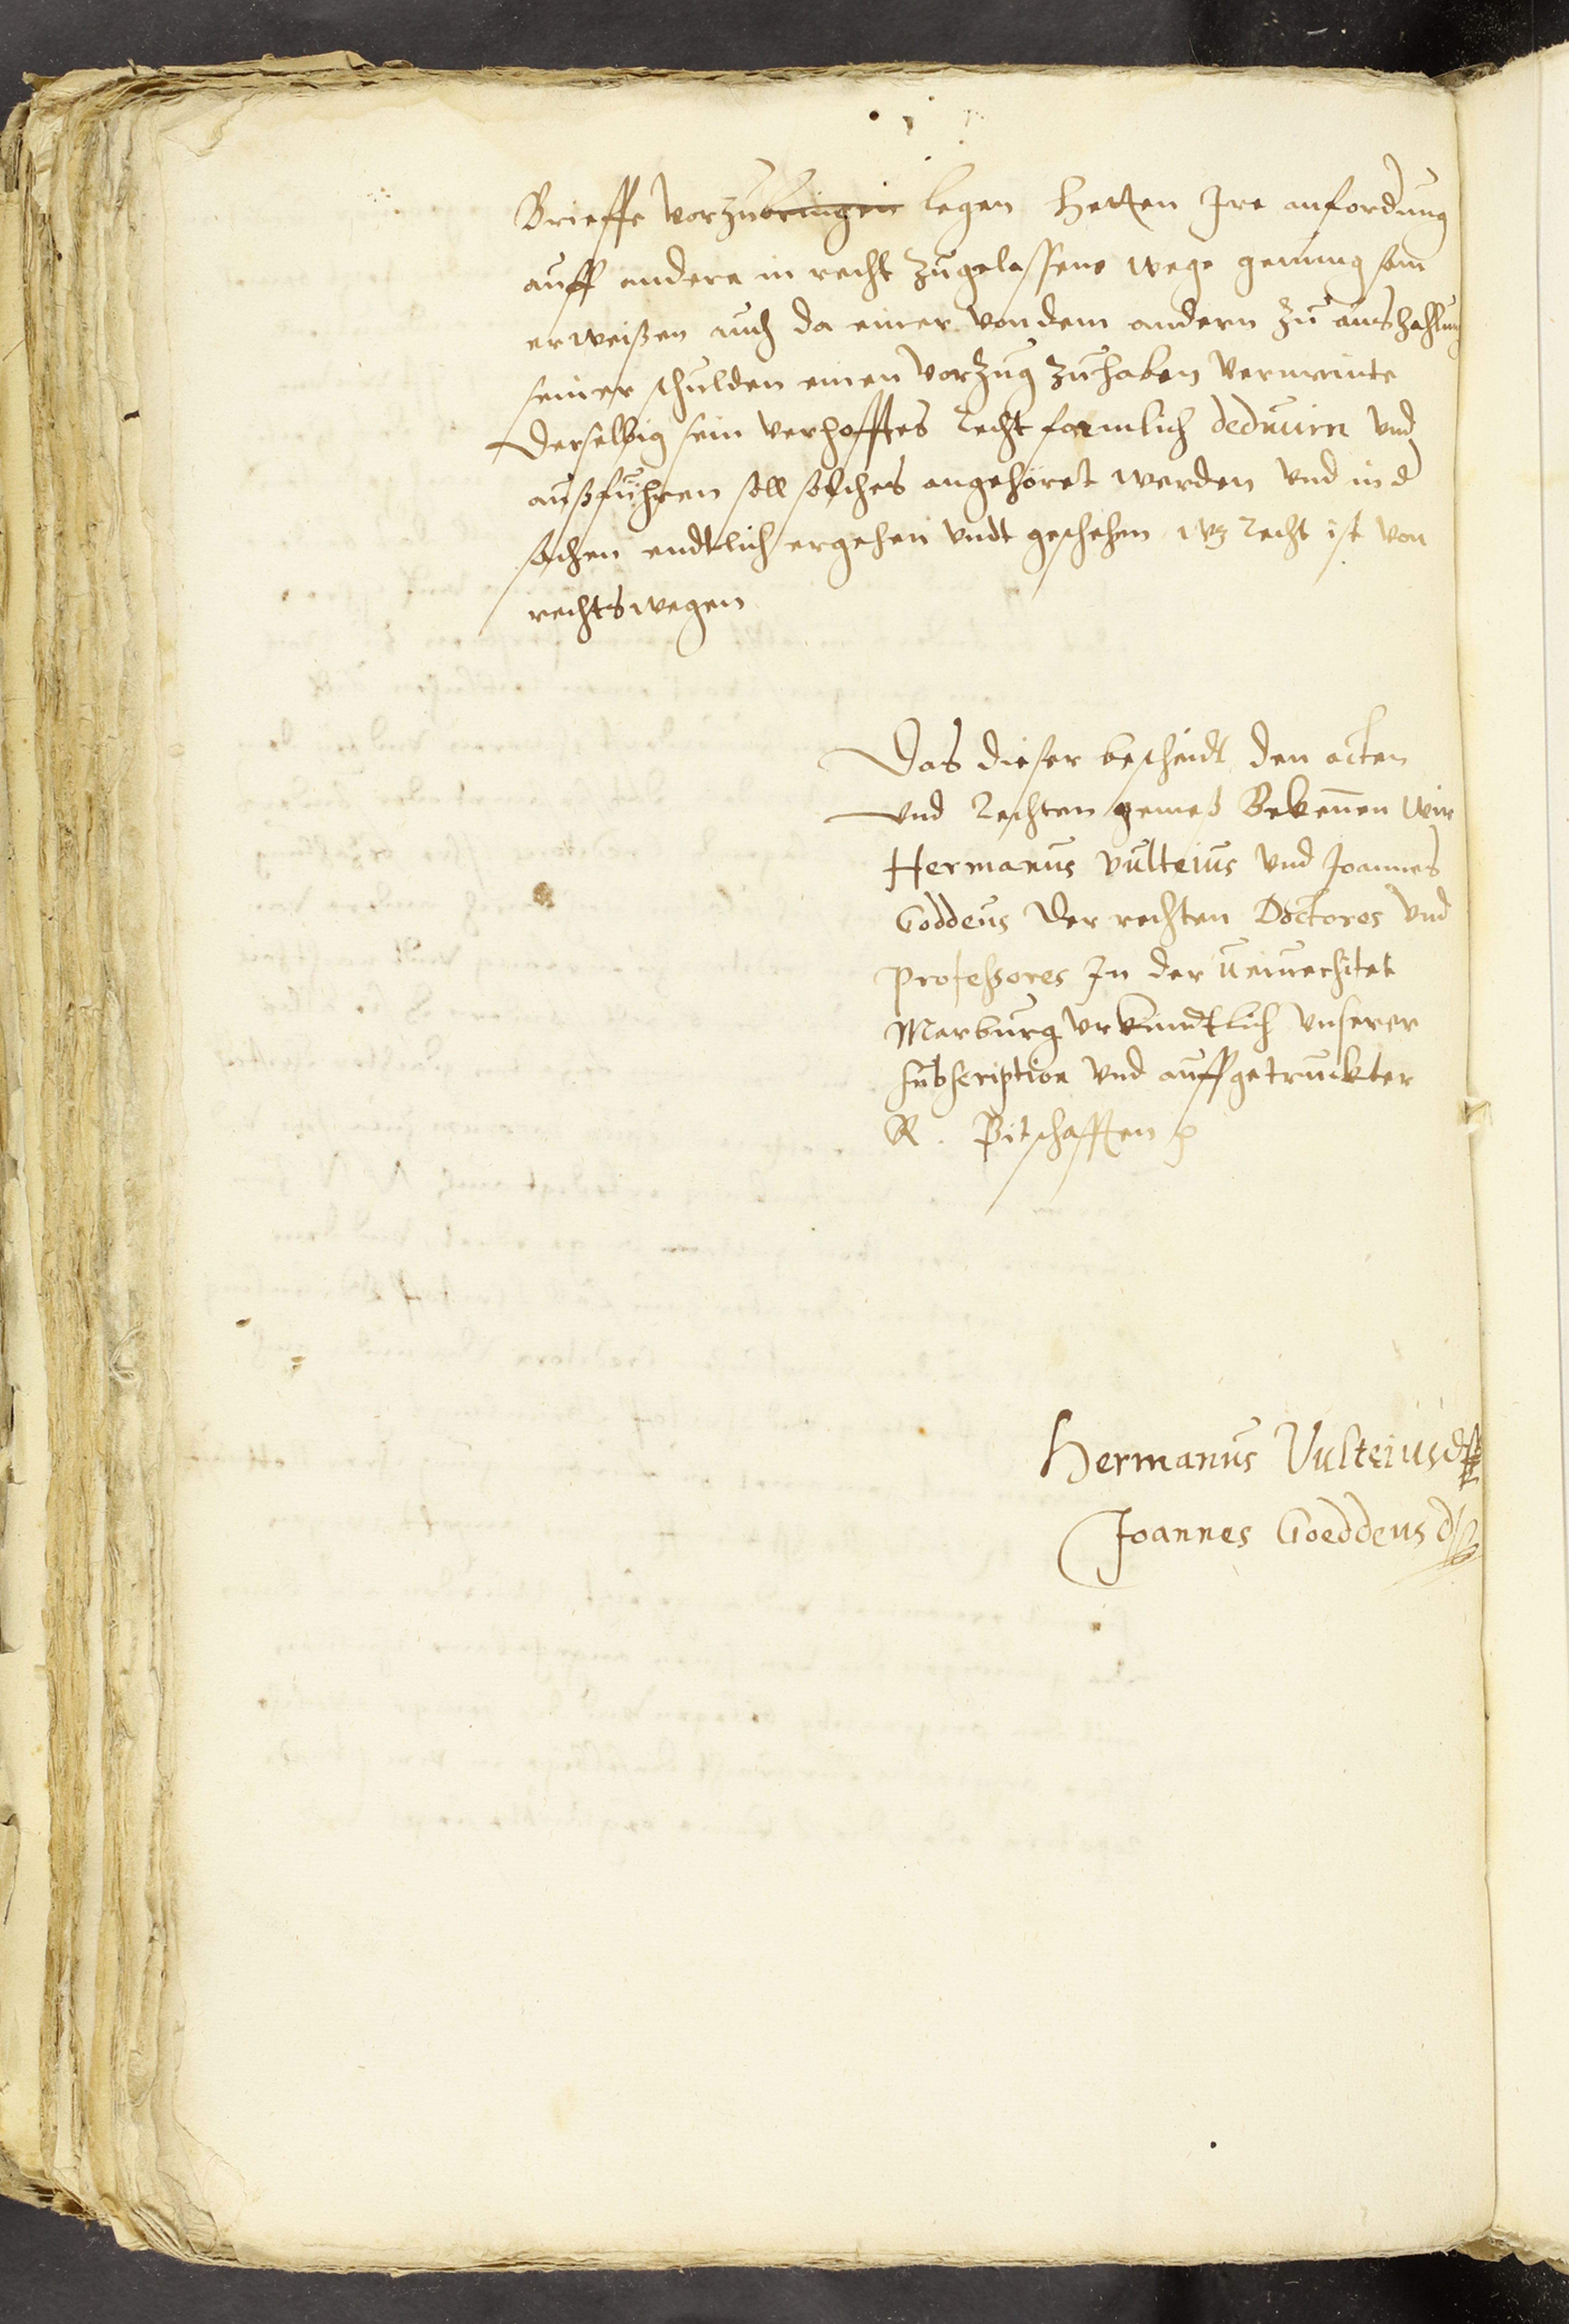 Brieffe vorzubringen legen hetten Ire anfordrung
auff andere in recht zugelassene wege genung sam
erweißen auch da einer von dem andern zu auszahlung
seiner schulden einen vorzug zu haben vermeinte
derselbig sein verhofftes recht formlich deduciren vnd
außfuhren soll solches angehöret werden vnd in d
sachen endtlich ergehen vndt geschehen wz recht ist von
rechts wegen
Das dieser bescheidt den acten
vnd rechten gemeß Bekennen wir
Hermanus Vulteius vnd Joannes
Goddeus der rechten Doctores vnd
professores In der Vniuersitet
Marburg vrkundtlich vnserer
subscription vnd auffgetruckter
Pitschafften
Hermanus Vulteius d
Joannes Goeddeus d